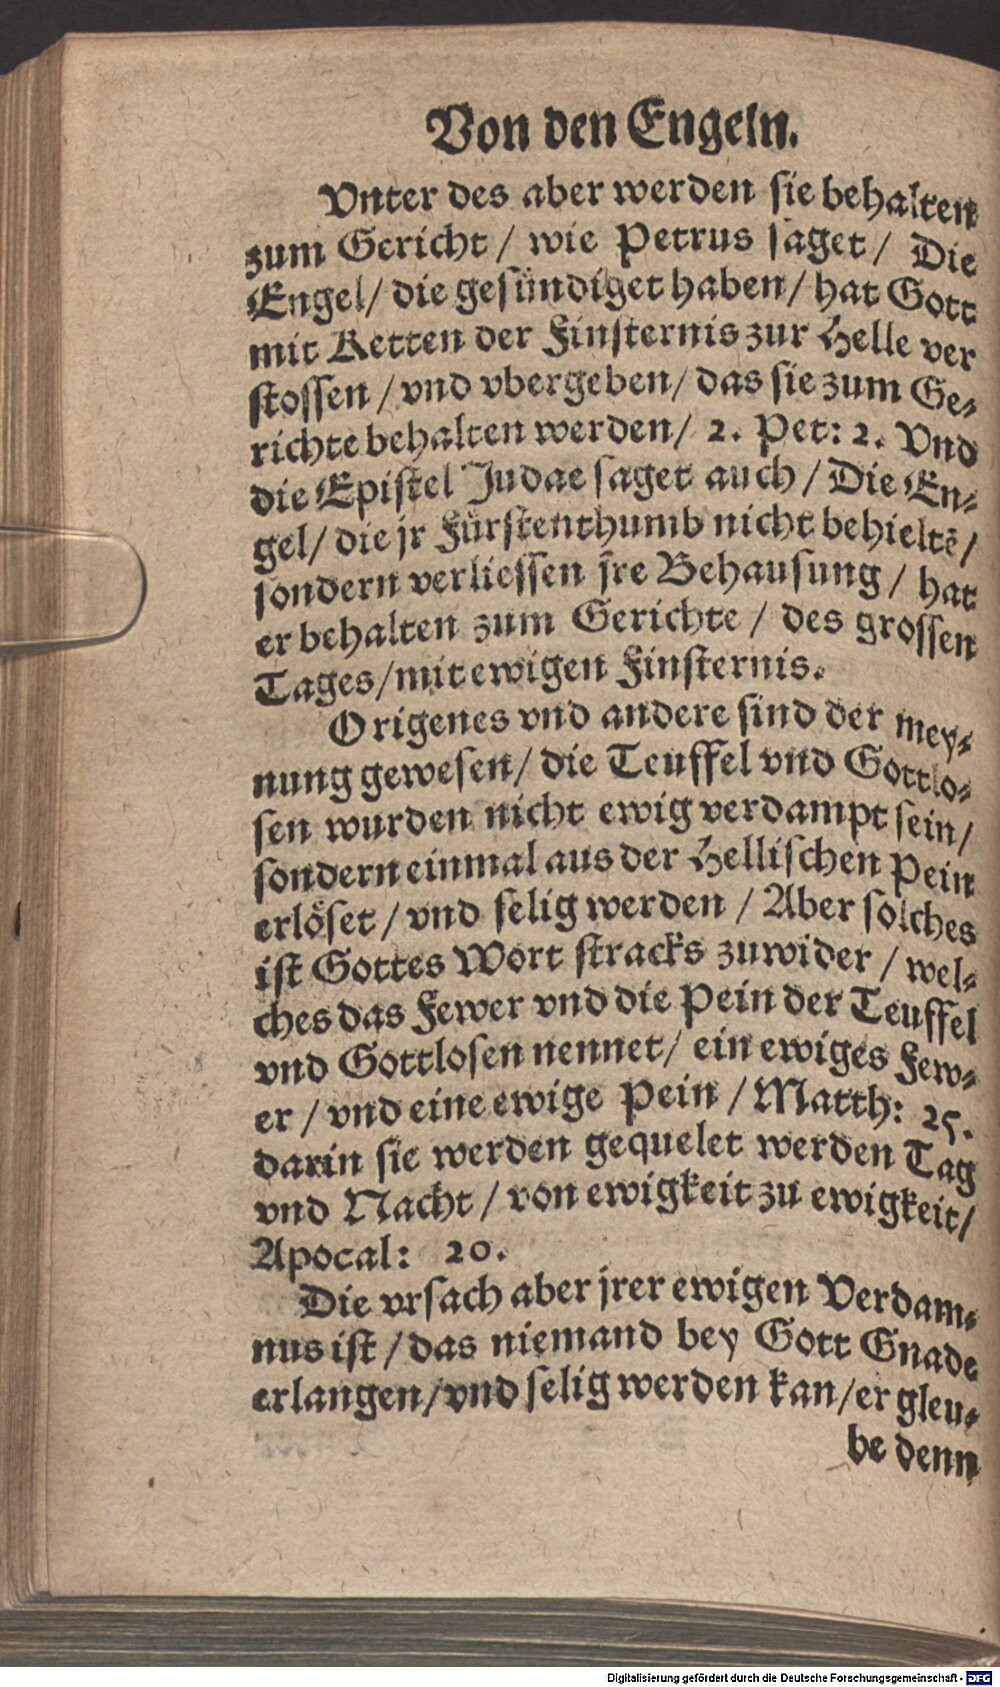 Von den Engeln.
Vnter des aber werden sie behalten
zum Gericht / wie Petrus saget / Die
Engel / die gesündiget haben / hat Gott
mit Ketten der Finsternis zur Helle ver
stossen / vnd vbergeben / das sie zum Ge⸗
richte behalten werden / 2. Pet: 2. Vnd
die Epistel Judae saget auch / Die En⸗
gel / die jr Fürstenthumb nicht behieltẽ /
sondern verliessen jre Behausung / hat
er behalten zum Gerichte / des grossen
Tages / mit ewigen Finsternis.
Origenes vnd andere sind der mey⸗
nung gewesen / die Teuffel vnd Gottlo⸗
sen wurden nicht ewig verdampt sein /
sondern einmal aus der Hellischen Pein
erlöset / vnd selig werden / Aber solches
ist Gottes Wort stracks zuwider / wel⸗
ches das Fewer vnd die Pein der Teuffel
vnd Gottlosen nennet / ein ewiges Few⸗
er / vnd eine ewige Pein / Matth: 25.
darin sie werden gequelet werden Tag
vnd Nacht / von ewigkeit zu ewigkeit /
Apocal: 20.
Die vrsach aber jrer ewigen Verdam⸗
nus ist / das niemand bey Gott Gnade
erlangen / vnd selig werden kan / er gleu⸗
be denn
Digitalisierung gefördert durch die Deutsche Forschungsgemeinschaft - DFG